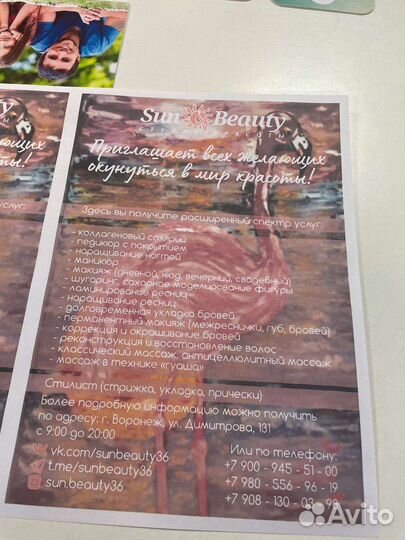 Sun Beauty
СТУДИЯ КРАСОТЫ
Приглашает всех желающих
окунуться в мир красоты!
Здесь вы получите расширенный спектр услуг:
- коллагеновый солярий
- педикюр с покрытием
- наращивание ногтей
- маникюр
- макияж (дневной, нюд, вечерний, свадебный)
- шугаринг, сахарное моделирование фигуры
- ламинирование ресниц
- наращивание ресниц
- долговременная укладка бровей
- перманентный макияж (межреснички, губ, бровей)
- коррекция и окрашивание бровей
- реконструкция и восстановление волос
- классический массаж, антицеллюлитный массаж
- массаж в технике «гуаша»
Стилист (стрижка, укладка, прически)
Более подробную информацию можно получить
по адресу: г. Воронеж, ул. Димитрова, 131
с 9:00 до 20:00
vk.com/sunbeauty36
t.me/sunbeauty36
sun.beauty36
Или по телефону:
+7 900 - 945 - 51 - 00
+7 980 - 556 - 96 - 19
+7 908 - 130 - 03 - 99
Beauty
КРАСОТЫ
желающих
ты!
услуг:
Avito